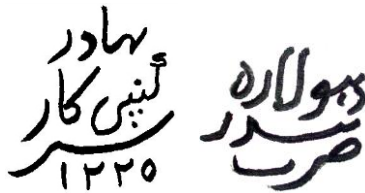 بهادر
کنپنی کار
سر
۱۲۲۵
دهولاره
بندر
ضرب